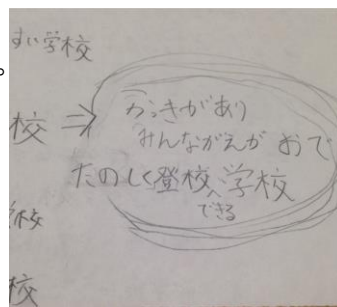 すい学校
校 ⇒
かっきがあり
みんながえがおで
たのしく登校、学校
できる
校
校